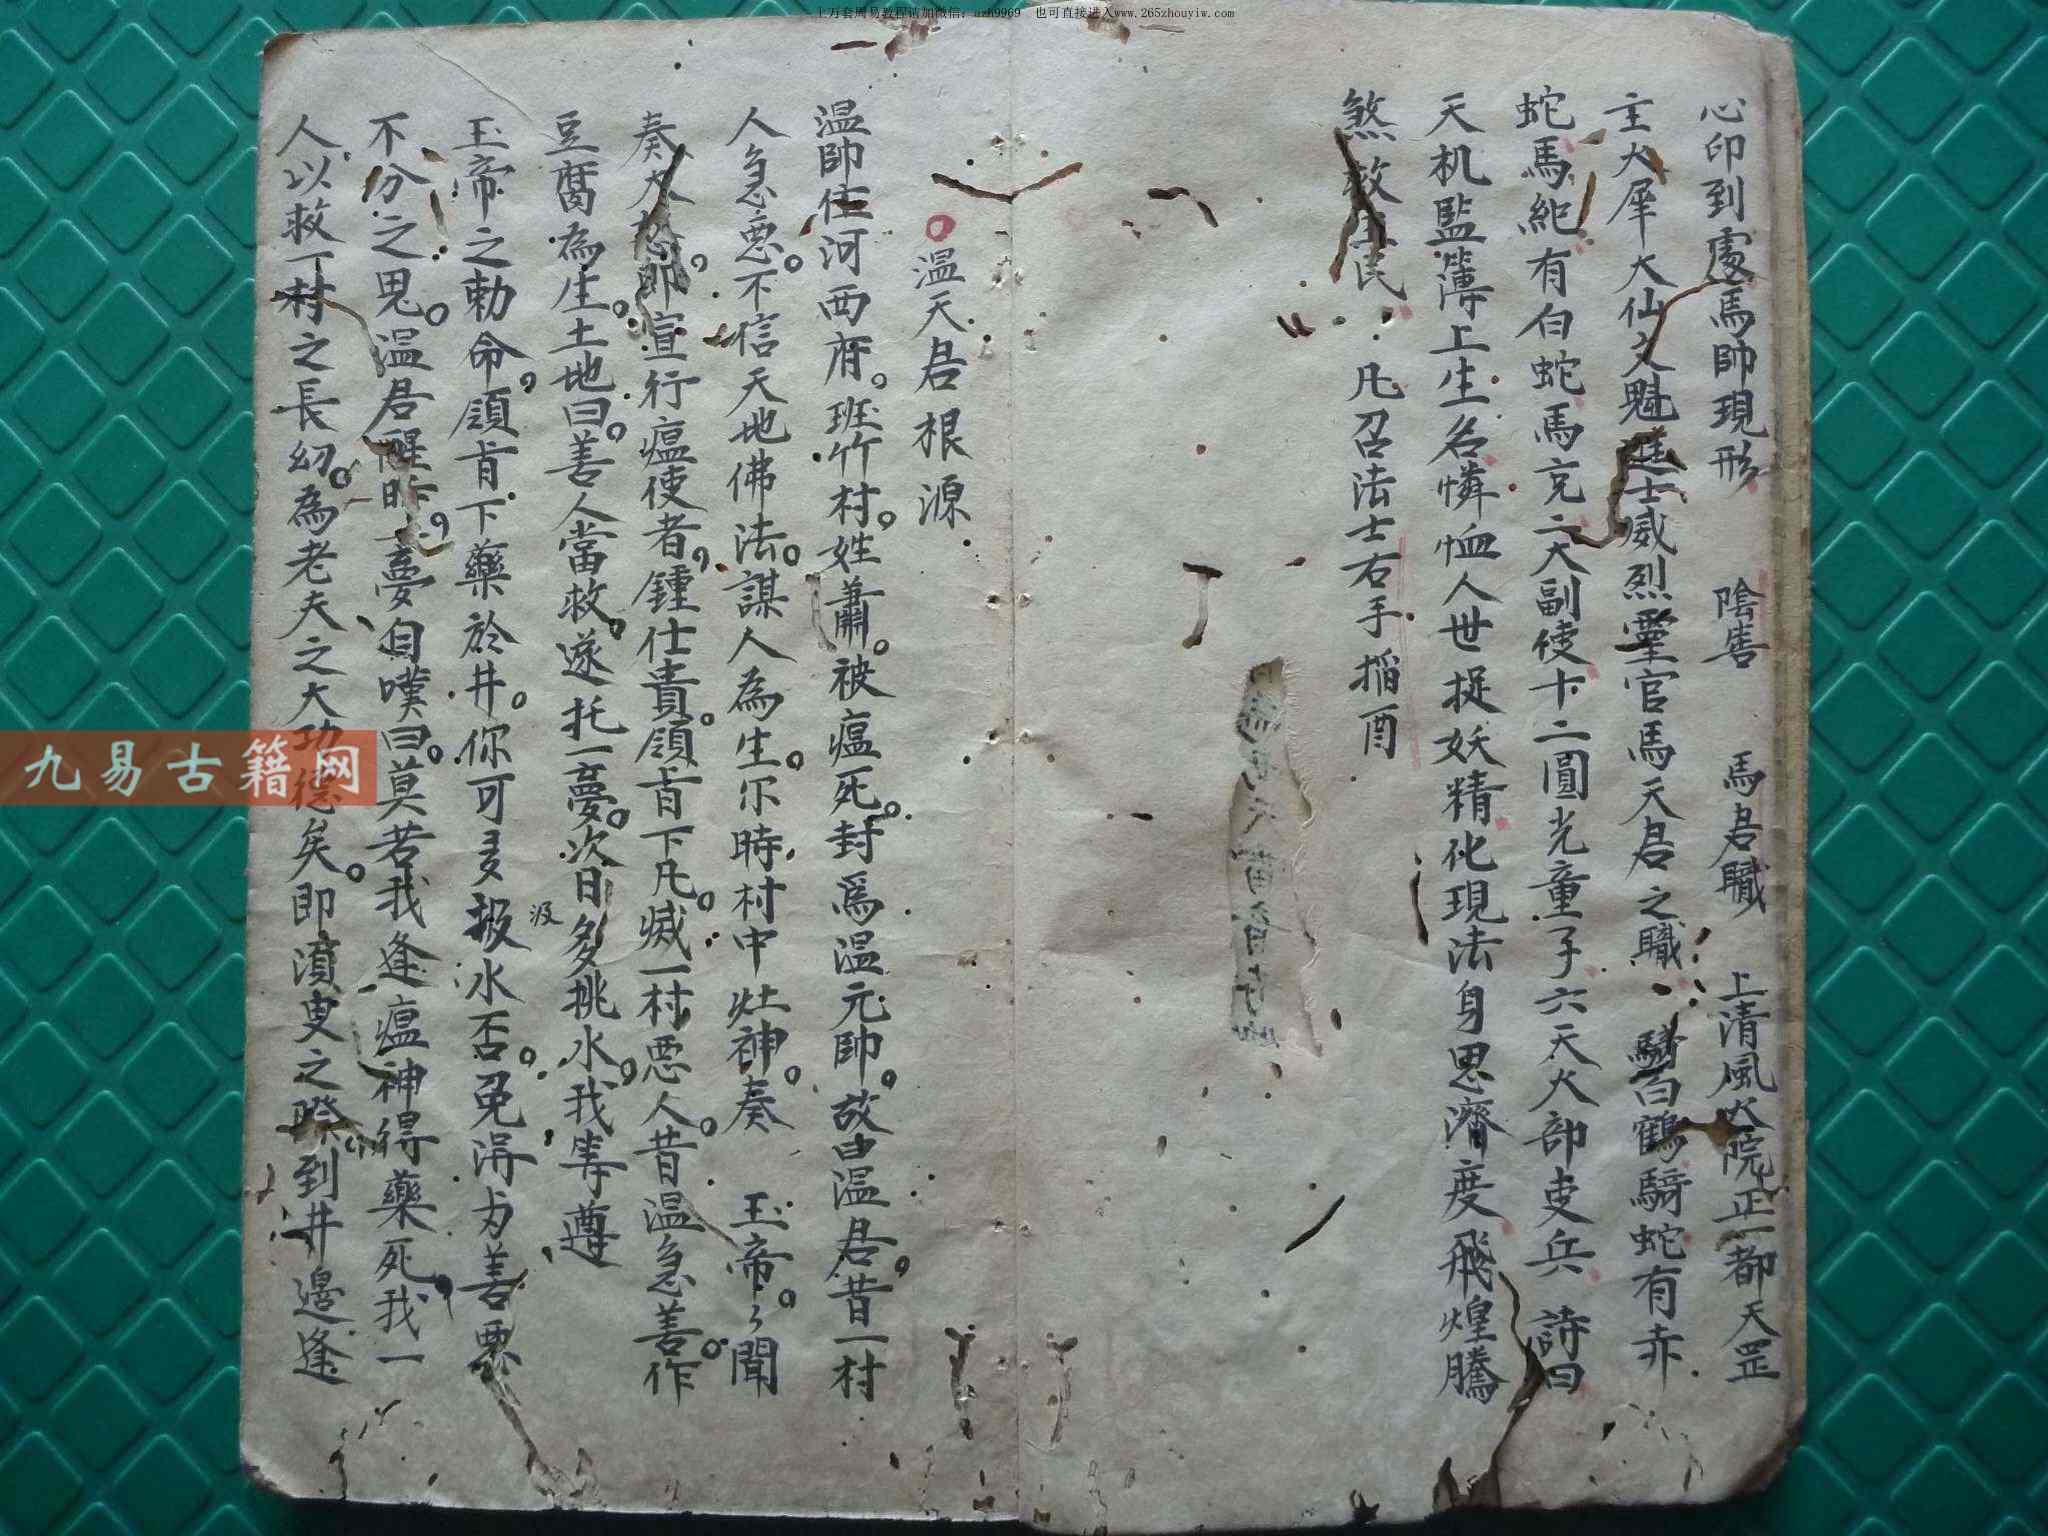 上万套周易教程请加微信：azh9969 也可直接进入www.265zhouyiw.com
心印到處馬帥現形 陰告 馬君職 上清風火院正一都天罡
主火犀大仙文魁進士威烈靈官馬天君之職 騎白鶴騎蛇有赤
蛇馬紀有白蛇馬充二大副使十二圓光童子六天火部吏兵 詩曰
天机監簿上生名憐恤人世捉妖精化現法身思濟度飛煌騰
煞救生民 凡召法士右手掐酉
温天君根源
温帥住河西府。班竹村。姓蕭。被瘟死。封爲温元帥。故曰温君。昔一村
人急惡。不信天地佛法。謀人為生。尔時村中灶神。奏 玉帝。々聞
奏大怒。即宣行瘟使者。鍾仕貴。領旨下凡。滅一村惡人。昔温急善。作
豆腐為生。土地曰。善人當救。遂托一夢。次日多挑水。我等遵
玉帝之勅命。領旨下藥於井。你可多报水否。免淂为善惡
汲
不分之鬼。温君醒昨夢。自嘆曰。莫若我逢瘟神得藥死。我一
人以救一村之長幼。為老夫之大功德矣。即濆叟之際。到井邊逢
九易古籍网